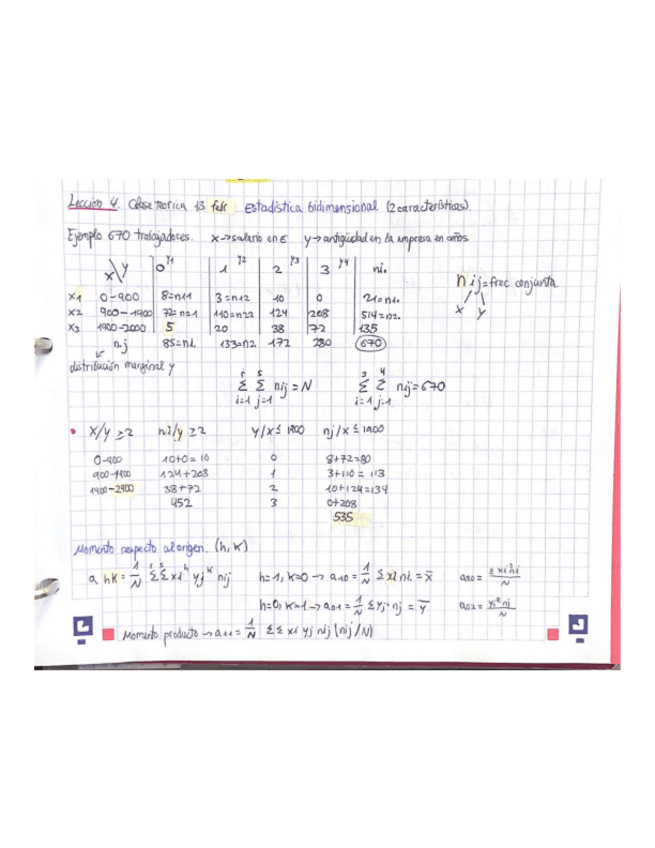 Lección 4. Clase Teórica 13 feb estadística bidimensional (2 características).
Ejemplo 670 trabajadores. x→salario en € y→antigüedad en la empresa en años.
x\y 0 y1 1 y2 2 y3 3 y4 ni.
nij=frec conjunta.
x y
x1 0-900 8=n11 3=n12 10 0 21=n1.
x2 900-1400 72=n21 110=n22 124 208 514=n2.
x3 1400-2000 5 20 38 72 135
n.j 85=n1. 133=n2 172 280 670
distribución marginal y
r Σ i=1 s Σ j=1 nij = N 3 Σ i=1 4 Σ j=1 nij=670
• x/y ≥2 ni/y ≥2 y/x ≤ 1400 nj/x ≤ 1400
0-900 10+0=10 0 8+72=80
900-1400 124+208 1 3+110=113
1400-2900 38+72 2 10+124=134
452 3 0+208
535
Momento respecto al origen. (h, k)
a hk = 1/N r Σ s Σ xi^h yj^k nij h=1, k=0 → a10 = 1/N Σ xi ni. = x̄ a20 = Σ xi² ni / N
h=0, k=1 → a01 = 1/N Σ yj · nj = ȳ a02 = yi² nj / N
Momento producto → a11 = 1/N ΣΣ xi yj nij (nij/N)